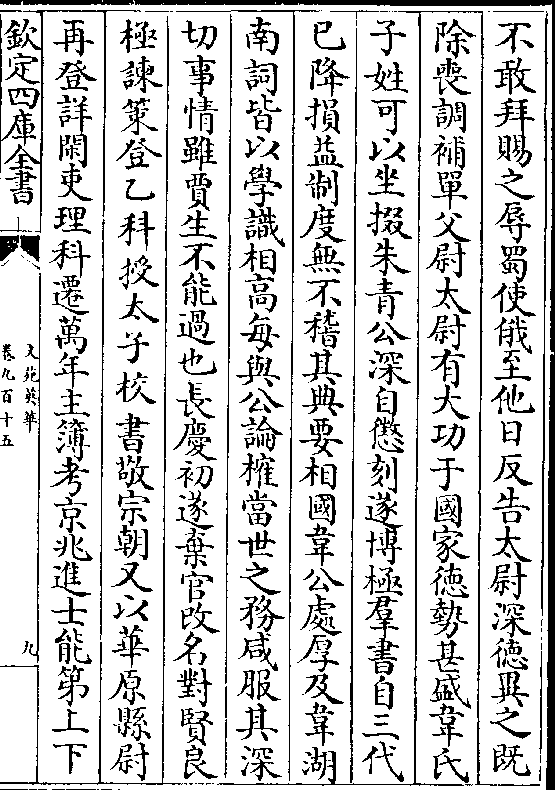 不敢拜賜之辱蜀使俄至他日反告太尉深德異之既
除喪調補單父尉太尉有大功于國家徳勢甚盛韋氏
子姓可以坐掇朱青公深自懲刻遂博極羣書自三代
已降損益制度無不稽其典要相國韋公處厚及韋湖
南詞皆以學識相高每與公論榷當世之務咸服其深
切事情雖賈生不能過也長慶初遂棄官改名對賢良
極諫策登乙科授太子校書敬宗朝又以華原縣尉
再登詳閑吏理科遷萬年主簿考京兆進士能第上下
欽定四庫全書
文苑英華
卷九百十五
九